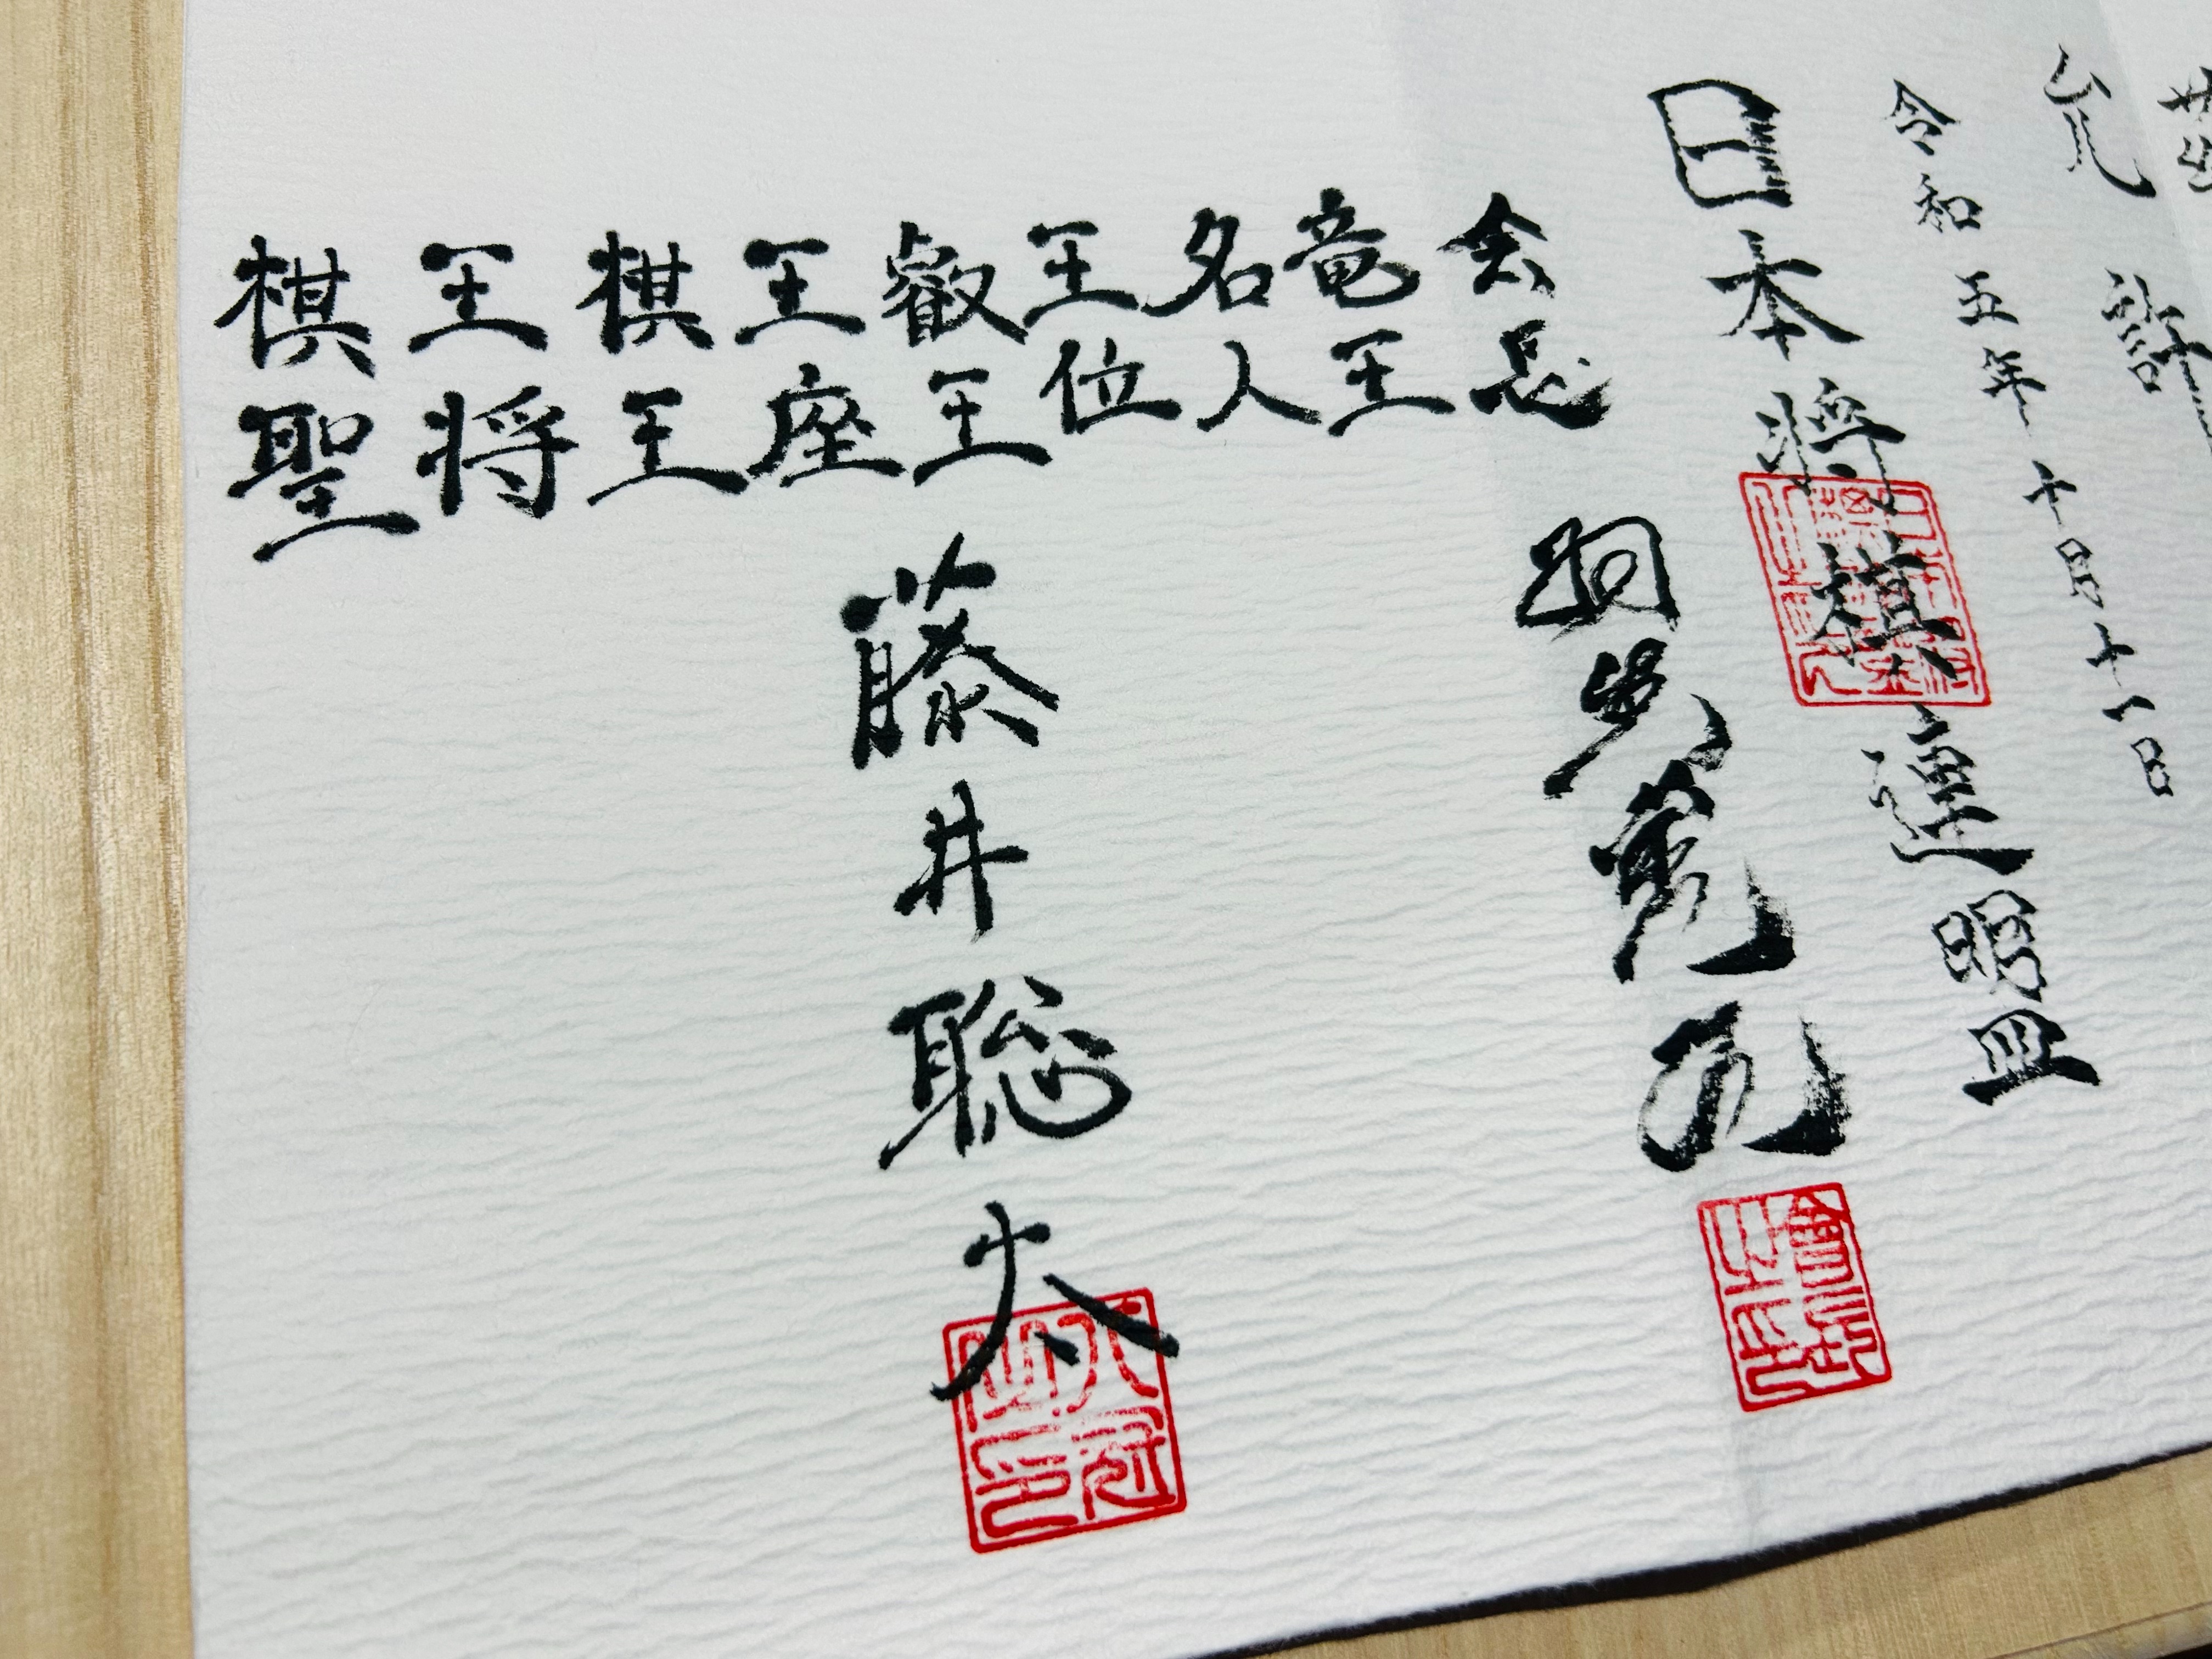 允許
令和五年十月十一日
日本将棋連盟
会長 羽生善治
會長之印
竜王
名人
王位
叡王
王座
棋王
王将
棋聖
藤井聡太
八冠之印